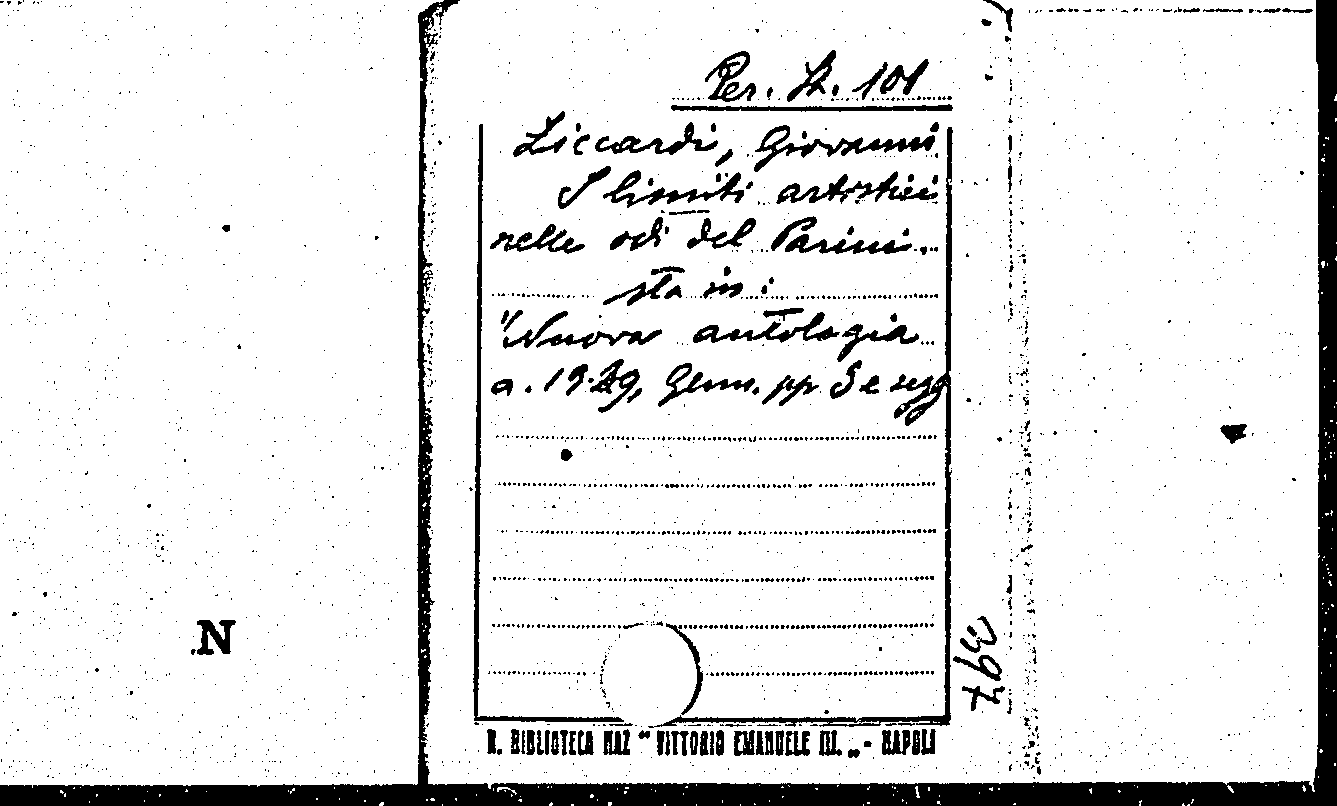 Per. It. 101
Liccardi, Giovanni.
I limiti artistici
nelle odi del Parini.
sta in:
"Nuova antologia
a. 1929, Genn. pp 3 e segg
397
N
R. BIBLIOTECA NAZ " VITTORIO EMANUELE III. „ - NAPOLI